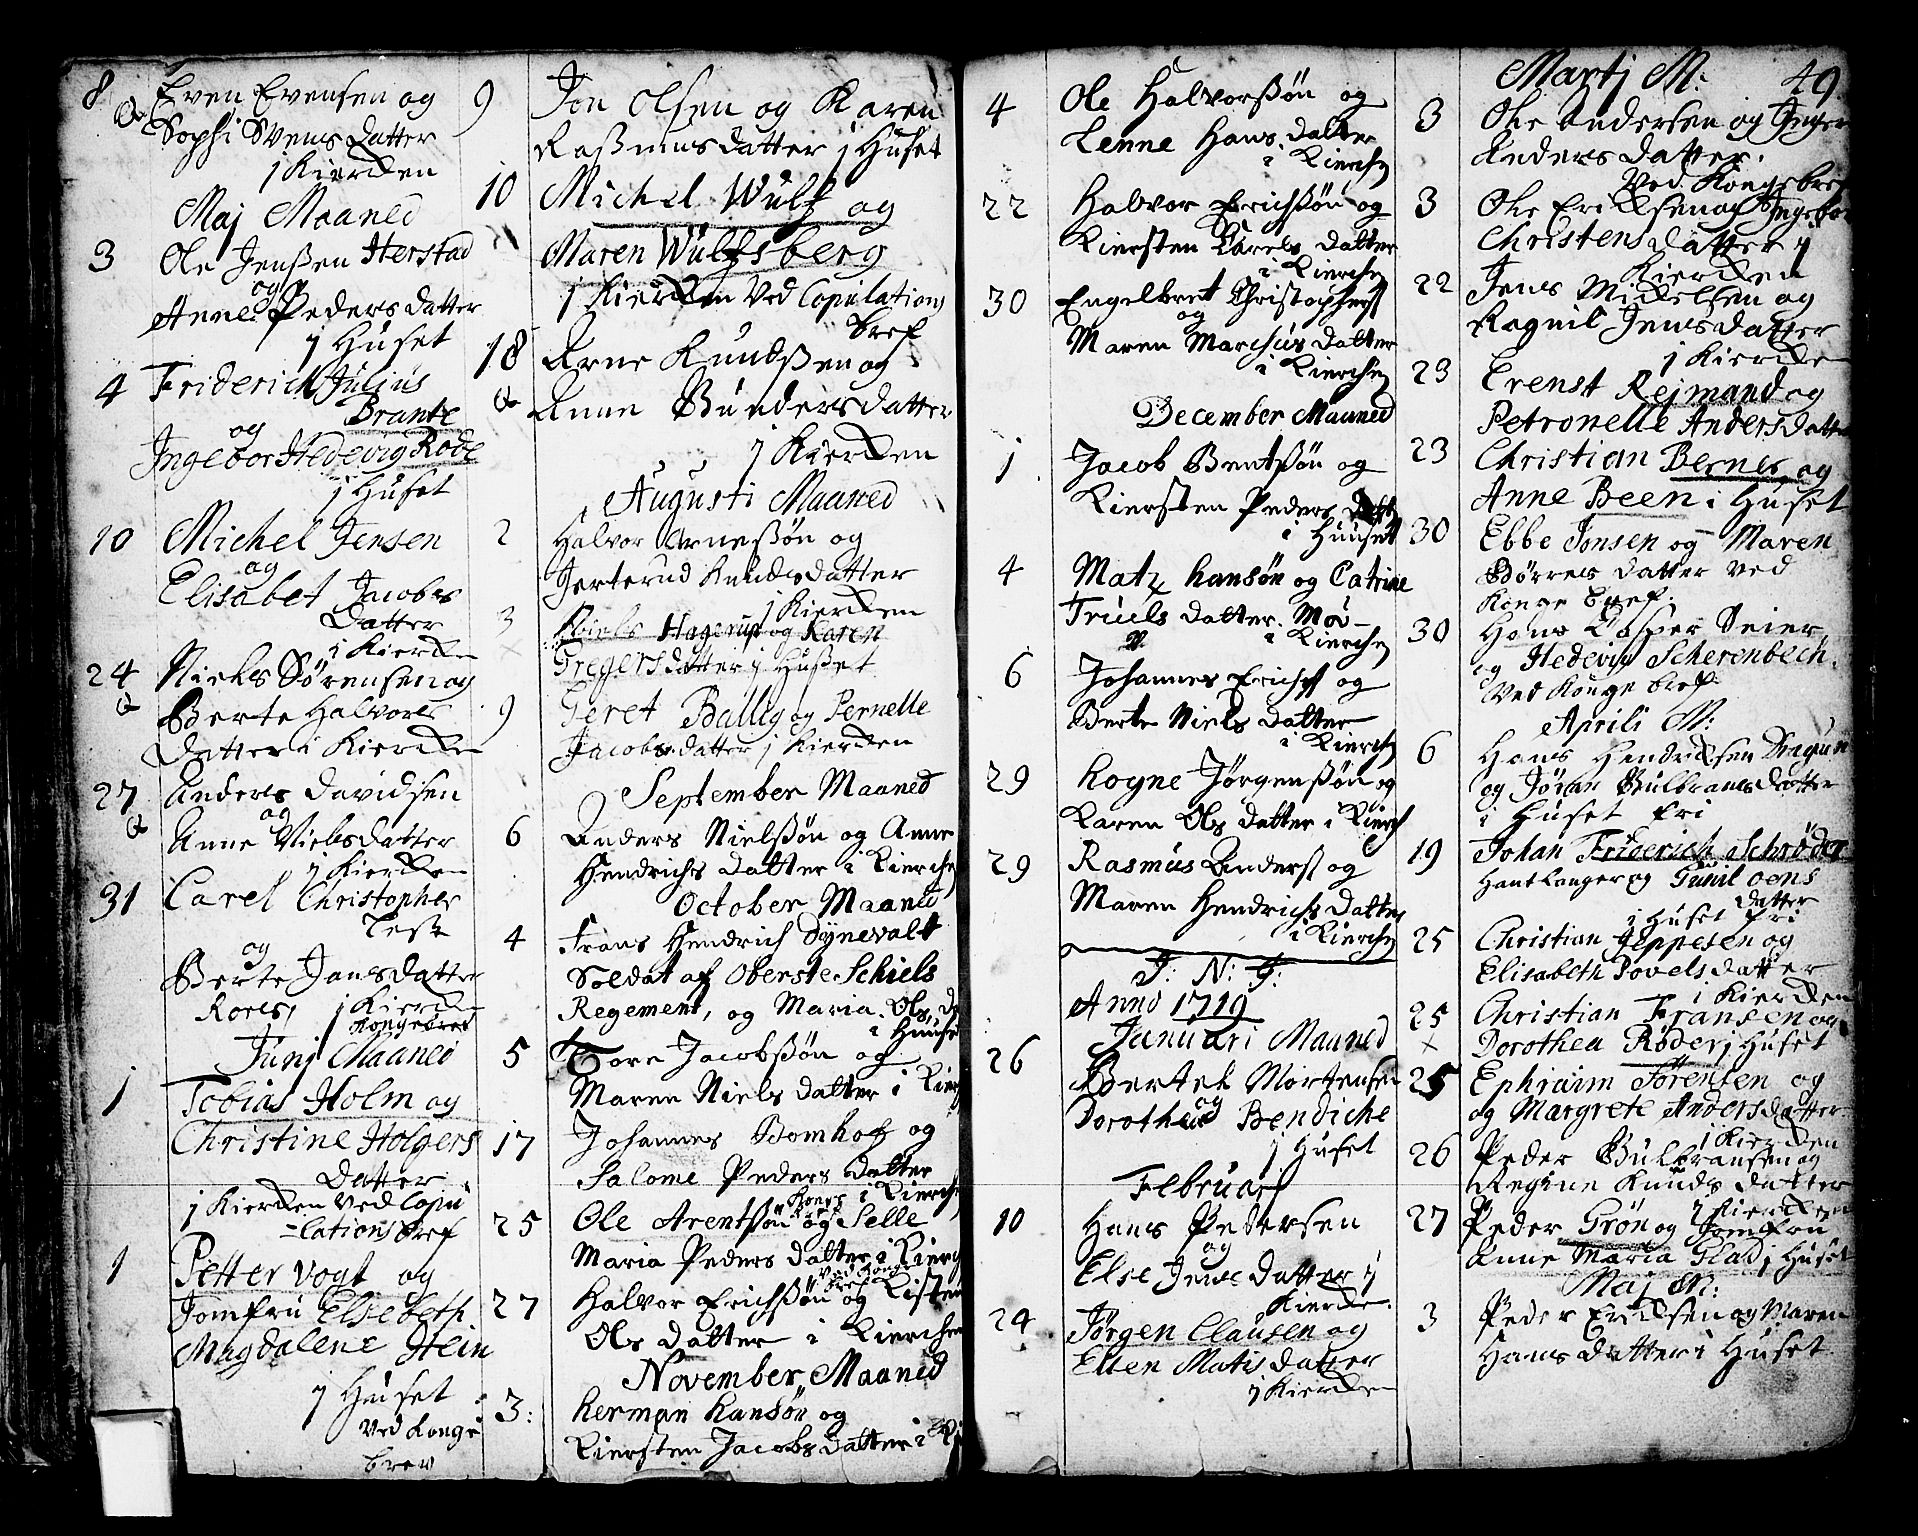 8 Even Evensen og
Sophi Svens datter
j Kierken
Maj Maaned
3 Ole Jenssen Herstad
og
Anne Peders datter
j Huset
4 Friderich Julius
Brante
og
Ingebor Hedevig Rode
j Huset
10 Michel Jensen
og
Elisabet Jacobs
Datter
i Kierken
24 Niels Sørensen og
Berte Halvors
Datter i Kierken
27 Anders Davidsen
og
Anne Nielsdatter
j Kierken
31 Carel Christopher
og
Berte Jansdatter
j Kierk
Kongebref
Junj Maaned
1 Tobias Holm og
Christine Holgers
Datter
j Kierken ved Copu
-lations bref
1 Petter Vogt og
Jomfru Elsebeth
Magdalene Hein
j Huset
ved Konge
brev
9 Jon Olsen og Karen
Rasmusdatter j Huset
10 Michel Wulf og
Maren Wulfsberg
j Kierken ved Copulations
bref
18 Arne Knudssen og
Anne Gunders datter
j Kierken
Augusti Maaned
2 Halvor Arnessøn og
Jertrud Knudsdatter
j Kierken
3 Niels Hagerup og Karen
Gregersdatter j Husset
9 Geret Ballig og Pernelle
Jacobs datter j Kierken
September Maaned
6 Anders Nielssøn og Anne
Hendrichs datter i Kierchen
October Maaned
4 Frans Hendrich Dynevalt
Soldat af Oberste Schiels
Regement, og Maria Ols
i Huuset
5 Tore Jacobssøn og
Maren Niels datter i Kierch
17 Johannes Bomhof og
Salome Peders datter
i Kierchen
25 Ole Arentssøn og Selle
Maria Peders datter i Kierch
27 Halvor Erichssøn og Kisten
Ols datter i Kierchen
November Maaned
3: Herman Hansøn og
Kiersten Jacobs datter i Ki
4 Ole Halvorssøn og
Lenne Hans datter
i Kierchen
22 Halvor Erichssøn og
Kiersten Carels datter
i Kierchen
30 Engelbret Christophers
og
Maren Marchus datter
i Kierchen
December Maaned
1 Jacob Bentssøn og
Kiersten Peders datt
i Huuset
4 Matz Hansøn og Catrine
Truels datter. Mø-
i Kierchen
6 Johannes Erichs og
Berte Niels datter
i Kierchen
29 Hogne Jørgenssøn og
Karen Ols datter i Kierch
29 Rasmus Anders og
Maren Hendrichs datter
i Kierchen
J: N: J:
Anno 1719
Januari Maaned
26 Bertel Mortensen
og
Dorothea Bendiche
j Huset
Februarj
10 Hans Petersen
og
Else Jens datter j
Kierke.
24 Jørgen Clausen og
Ellen Matis datter
j Kierken
Martj M: 49
3 Ole Andersen og Inger
Anders datter.
Ved Konge bref
3 Ole Eriksen og Ingebor
Christens datter j
Kierken
22 Jens Mickelsen og
Ragnil Jensdatter
j Kierken
23 Erenst Rejmand og
Petronelle Anders datter
23 Christian Berner og
Anne Been i Huset
30 Ebbe Jonsen og Maren
Børres datter ved
Konge bref.
30 Hans Casper Seier
og Hedevig Scherenbech.
Ved Konge bref
Aprili M:
6 Hans Hendriksen Dragun
og Jøran Gulbrans datter
i Huset fri
19 Johan Friderich Schrøder
Hantlanger og Gunil oens
datter
i Huset fri
25 Christian Jeppesen og
Elisabeth Povels datter
i Kierken
25 Christian Fransen og
Dorothea Røder j Huset
25 Ephraim Sørensen og
og Margrete Anders datter
j Kierken
26 Peder Gulbransen og
Regine Knuds datter
j Kierken
27 Peder Grøn og Jomfru
Anne Maria Glad j Huset
Maj M:
3 Peder Eriksen og Maren
Hans datter i Huset